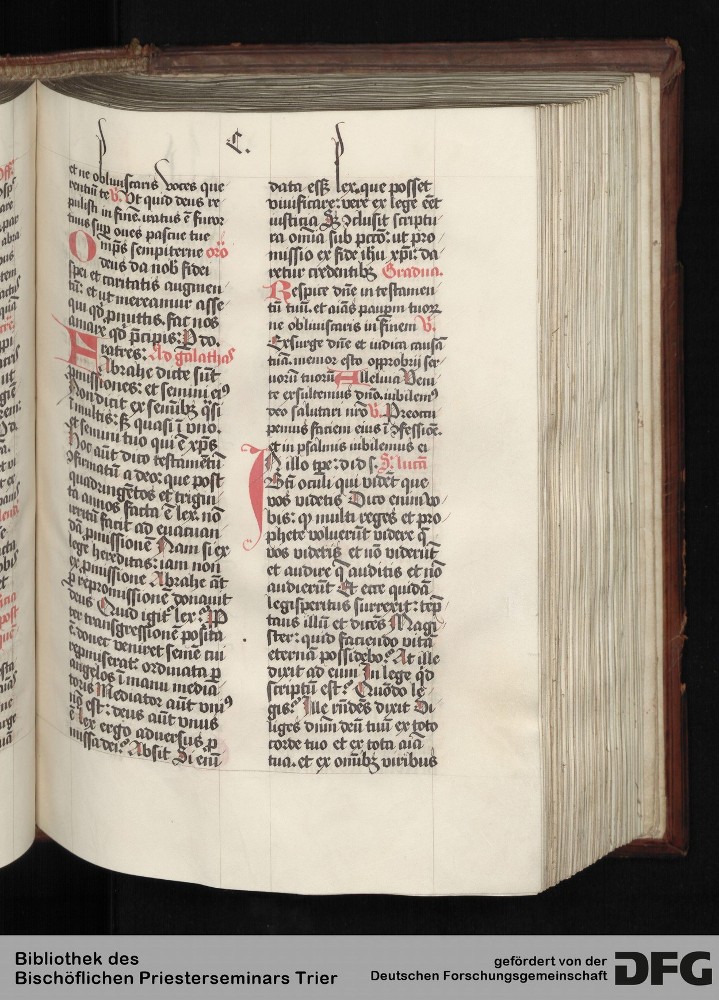 C.
et ne obliuiscaris voces que
rentiū te V. Ut quid deus re
pulisti in finē. iratus ē furor
tuus sup oues pascue tue
Omp̄s sempiterne orō
deus da nob fidei
spei et caritatis augmen
tū: et ut mereamur asse
qui qđ ꝓmittis. fac nos
amare qđ p̄cipis: P do.
Fratres: Ad galathas
Abrahe dicte sūt
ꝓmissiones: et semini ei⁹
Non dicit ex seminibꝫ q̄si
ī multis: sꝫ quasi ī vno.
et semini tuo qui ē xp̄s
Hoc aūt dico testamētū
ↄfirmatū a deo: que post
quadringētos et trigin
ta annos facta ē lex. nō
irritū facit ad euacuan
dā ꝓmissionē Nam si ex
lege hereditas: iam non
ex ꝓmissione Abrahe aūt
ꝑ repromissionē donauit
deus Quid igit lex? Pꝓ
ter transgressionē posita
ē. donec veniret semē cui
repmiserat: ordinata ꝑ
angelos ī manu media
toris Mediator aūt vni⁹
nō est: deus aūt vnus
ē Lex ergo aduersus ꝓ
missa dei? Absit Si enī
data essꝫ lex. que posset
viuificare: vere ex lege eēt
iusticia Sꝫ ↄclusit scriptu
ra omīa sub pctō: ut pro
missio ex fide ihū xp̄i: da
retur credentibꝫ Gradua.
Respice dn̄e in testamen
tū tuū. et aīas pauꝑm tuoꝝ
ne obliuiscaris in finem V.
Exsurge dn̄e et iudica causā
tuā. memor esto opprobrij ser
uorū tuorū Alleluia Veni
te exsultemus dn̄o. iubilem⁹
deo salutari nr̄o V. Preoccu
pemus faciem eius ī ↄfessiōe.
et in psalmis iubilemus ei
In illo tp̄e: d. i. d. s. S. lucā
Bt̄i oculi qui vidēt que
vos videtis Dico enim vo
bis: ꝙ multi reges et pro
phete voluerūt videre q̄
vos videtis et nō viderūt
et audire q̄ auditis et nō
audierūt Et ecce quidā
legisperitus surrexit: tēp
tans illū et dicēs Magi
ster: quid faciendo vitā
eternā possidebo? At ille
dixit ad eum In lege qđ
scriptū est? Quōdo le
gis? Ille rn̄dēs dixit Di
liges dn̄m deū tuū ex toto
corde tuo et ex tota aīa
tua. et ex omībꝫ viribus
Bibliothek des
Bischöflichen Priesterseminars Trier
gefördert von der
Deutschen Forschungsgemeinschaft
DFG